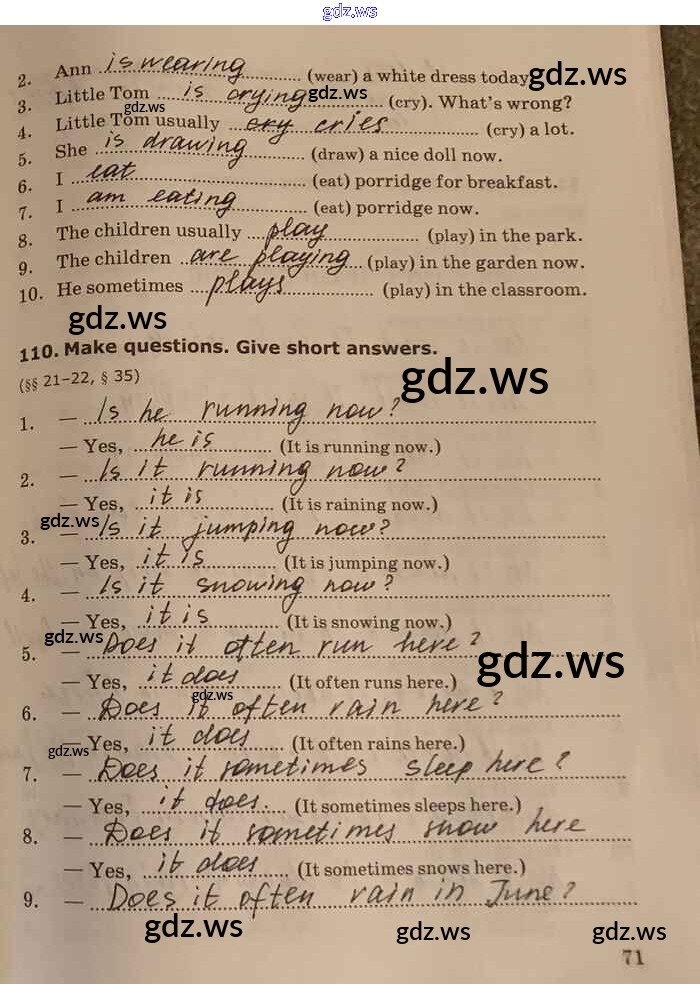 gdz.ws
2. Ann is wearing (wear) a white dress today gdz.ws
3. Little Tom is crying gdz.ws (cry). What's wrong?
gdz.ws
4. Little Tom usually cry cries (cry) a lot.
5. She is drawing (draw) a nice doll now.
6. I eat (eat) porridge for breakfast.
7. I am eating (eat) porridge now.
8. The children usually play (play) in the park.
9. The children are playing (play) in the garden now.
10. He sometimes plays (play) in the classroom.
gdz.ws
110. Make questions. Give short answers.
gdz.ws
(§§ 21–22, § 35)
1. — Is he running now?
— Yes, he is (It is running now.)
2. — Is it running now?
— Yes, it is (It is raining now.)
gdz.ws
3. — Is it jumping now?
— Yes, it is (It is jumping now.)
4. — Is it snowing now?
— Yes, it is (It is snowing now.)
gdz.ws
5. — Does it often run here?
gdz.ws
— Yes, it does (It often runs here.)
gdz.ws
6. — Does it often rain here?
— Yes, it does (It often rains here.)
gdz.ws
7. — Does it sometimes sleep here?
— Yes, it does. (It sometimes sleeps here.)
8. — Does it sometimes snow here
— Yes, it does (It sometimes snows here.)
9. — Does it often rain in June?
gdz.ws gdz.ws gdz.ws
71